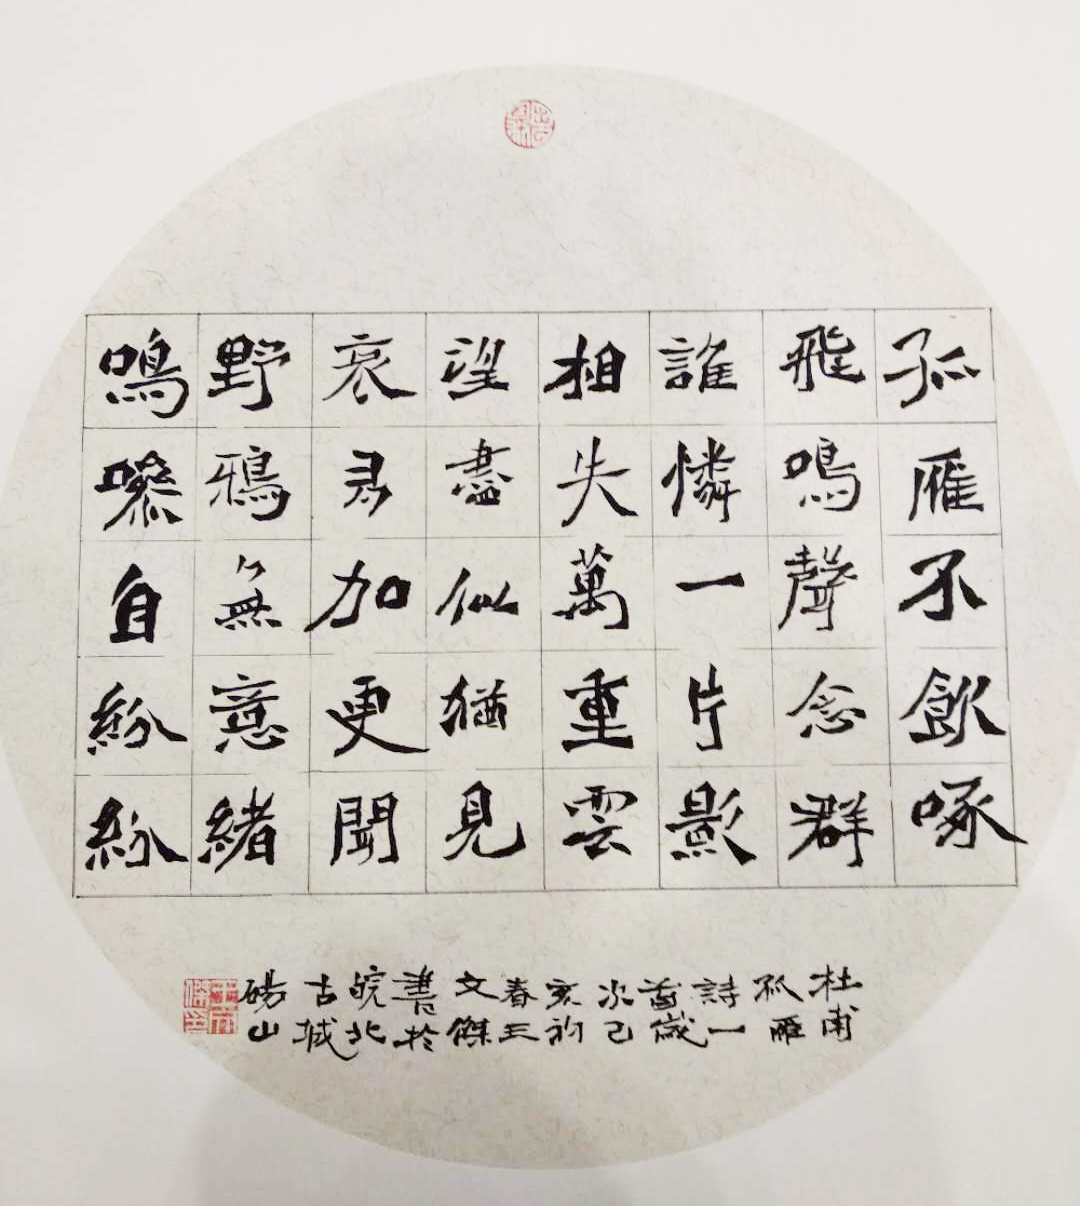 孤雁不飲啄
飛鳴聲念群
誰憐一片影
相失萬重雲
望盡似猶見
哀多加更聞
野鴉無意緒
鳴噪自紛紛
杜甫
孤雁
詩一
首歲
次己
亥初
春王
文傑
書於
皖北
古城
碭山
王文
傑印